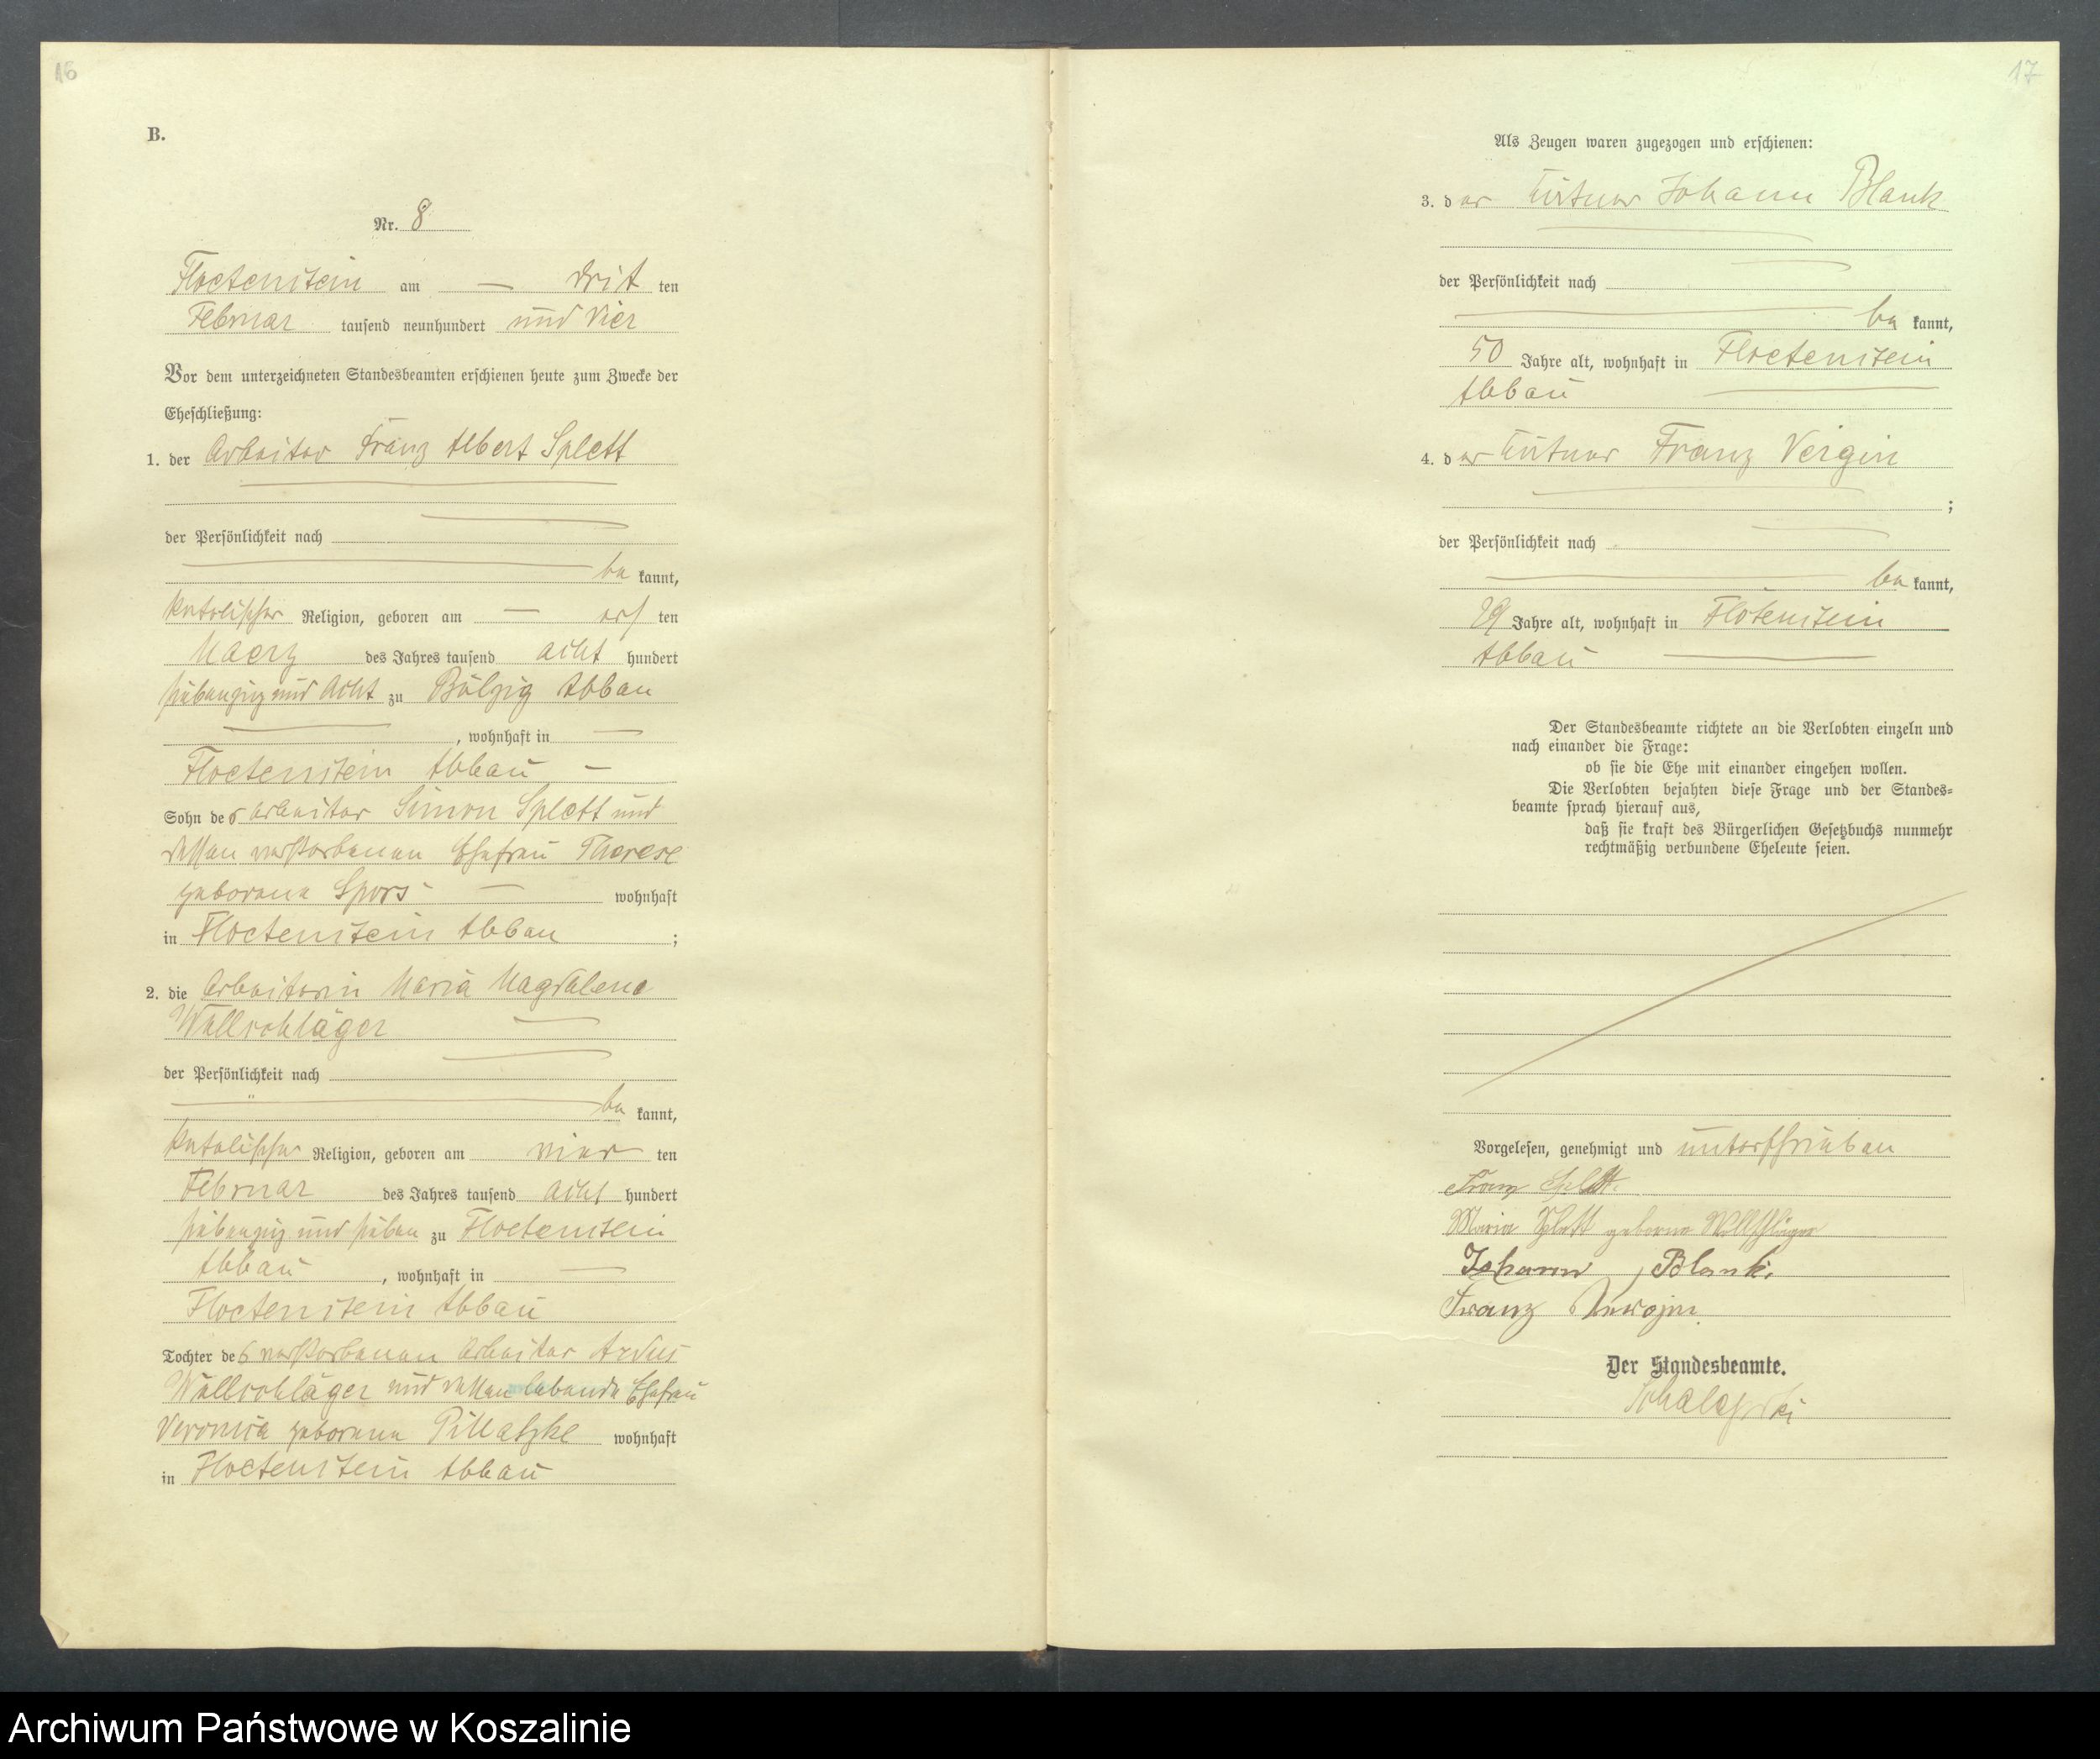 16
B.
Nr. 8
Floetenstein am — drit ten
Februar tausend neunhundert und vier
Vor dem unterzeichneten Standesbeamten erschienen heute zum Zwecke der
Eheschließung:
1. der Arbeiter Franz Albert Splett
der Persönlichkeit nach
be kannt,
katolischer Religion, geboren am — ach ten
Maerz des Jahres tausend acht hundert
siebenzig und acht zu Bölzig Abbau
, wohnhaft in —
Floetenstein Abbau —
Sohn des Arbeiter Simon Splett und
dessen verstorbenen Ehefrau Therese
geborene Spors — wohnhaft
in Floetenstein Abbau ;
2. die Arbeiterin Maria Magdalena
Wollschläger —
der Persönlichkeit nach
be kannt,
katolischer Religion, geboren am vier ten
Februar des Jahres tausend acht hundert
siebenzig und sieben zu Floetenstein
Abbau , wohnhaft in —
Floetenstein Abbau
Tochter des verstorbenen Arbeiter
Wollschläger und dessen lebende Ehefrau
Veronica geborene wohnhaft
in Floetenstein Abbau
17
Als Zeugen waren zugezogen und erschienen:
3. der Johann Blank
der Persönlichkeit nach
be kannt,
50 Jahre alt, wohnhaft in Floetenstein
Abbau —
4. der Franz Vergin
;
der Persönlichkeit nach
be kannt,
29 Jahre alt, wohnhaft in Flötenstein
Abbau —
Der Standesbeamte richtete an die Verlobten einzeln und
nach einander die Frage:
ob sie die Ehe mit einander eingehen wollen.
Die Verlobten bejahten diese Frage und der Standes=
beamte sprach hierauf aus,
daß sie kraft des Bürgerlichen Gesetzbuchs nunmehr
rechtmäßig verbundene Eheleute seien.
Vorgelesen, genehmigt und unterschrieben
Franz Splett.
Maria Splett geborne Wollschläger
Johann Blank.
Franz
Der Standesbeamte.
Archiwum Państwowe w Koszalinie